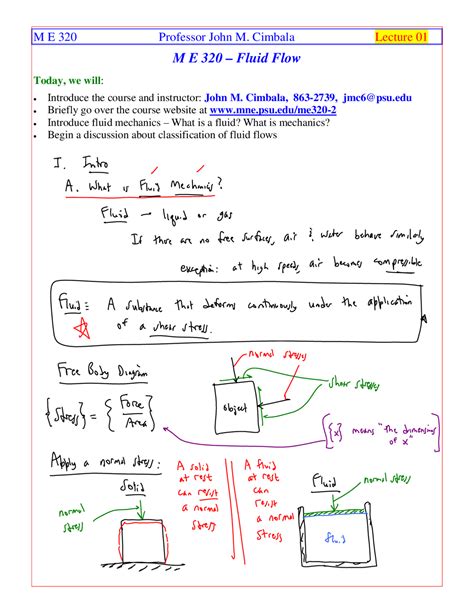 M E 320 Professor John M. Cimbala Lecture 01
M E 320 – Fluid Flow
Today, we will:
• Introduce the course and instructor: John M. Cimbala, 863-2739, jmc6@psu.edu
• Briefly go over the course website at www.mne.psu.edu/me320-2
• Introduce fluid mechanics – What is a fluid? What is mechanics?
• Begin a discussion about classification of fluid flows
I. Intro
A. What is Fluid Mechanics?
Fluid → liquid or gas
If there are no free surfaces, air & water behave similarly
exception: at high speeds, air becomes compressible
Fluid ≡ A substance that deforms continuously under the application
of a shear stress.
Free Body Diagram
normal stresses
shear stresses
object
{Stress} = {Force/Area}
{x} means "the dimensions
of x"
Apply a normal stress:
Solid
normal
stress
A solid
at rest
can resist
a normal
stress
A fluid
at rest
can
resist
a normal
stress
Fluid
normal stress
fluid